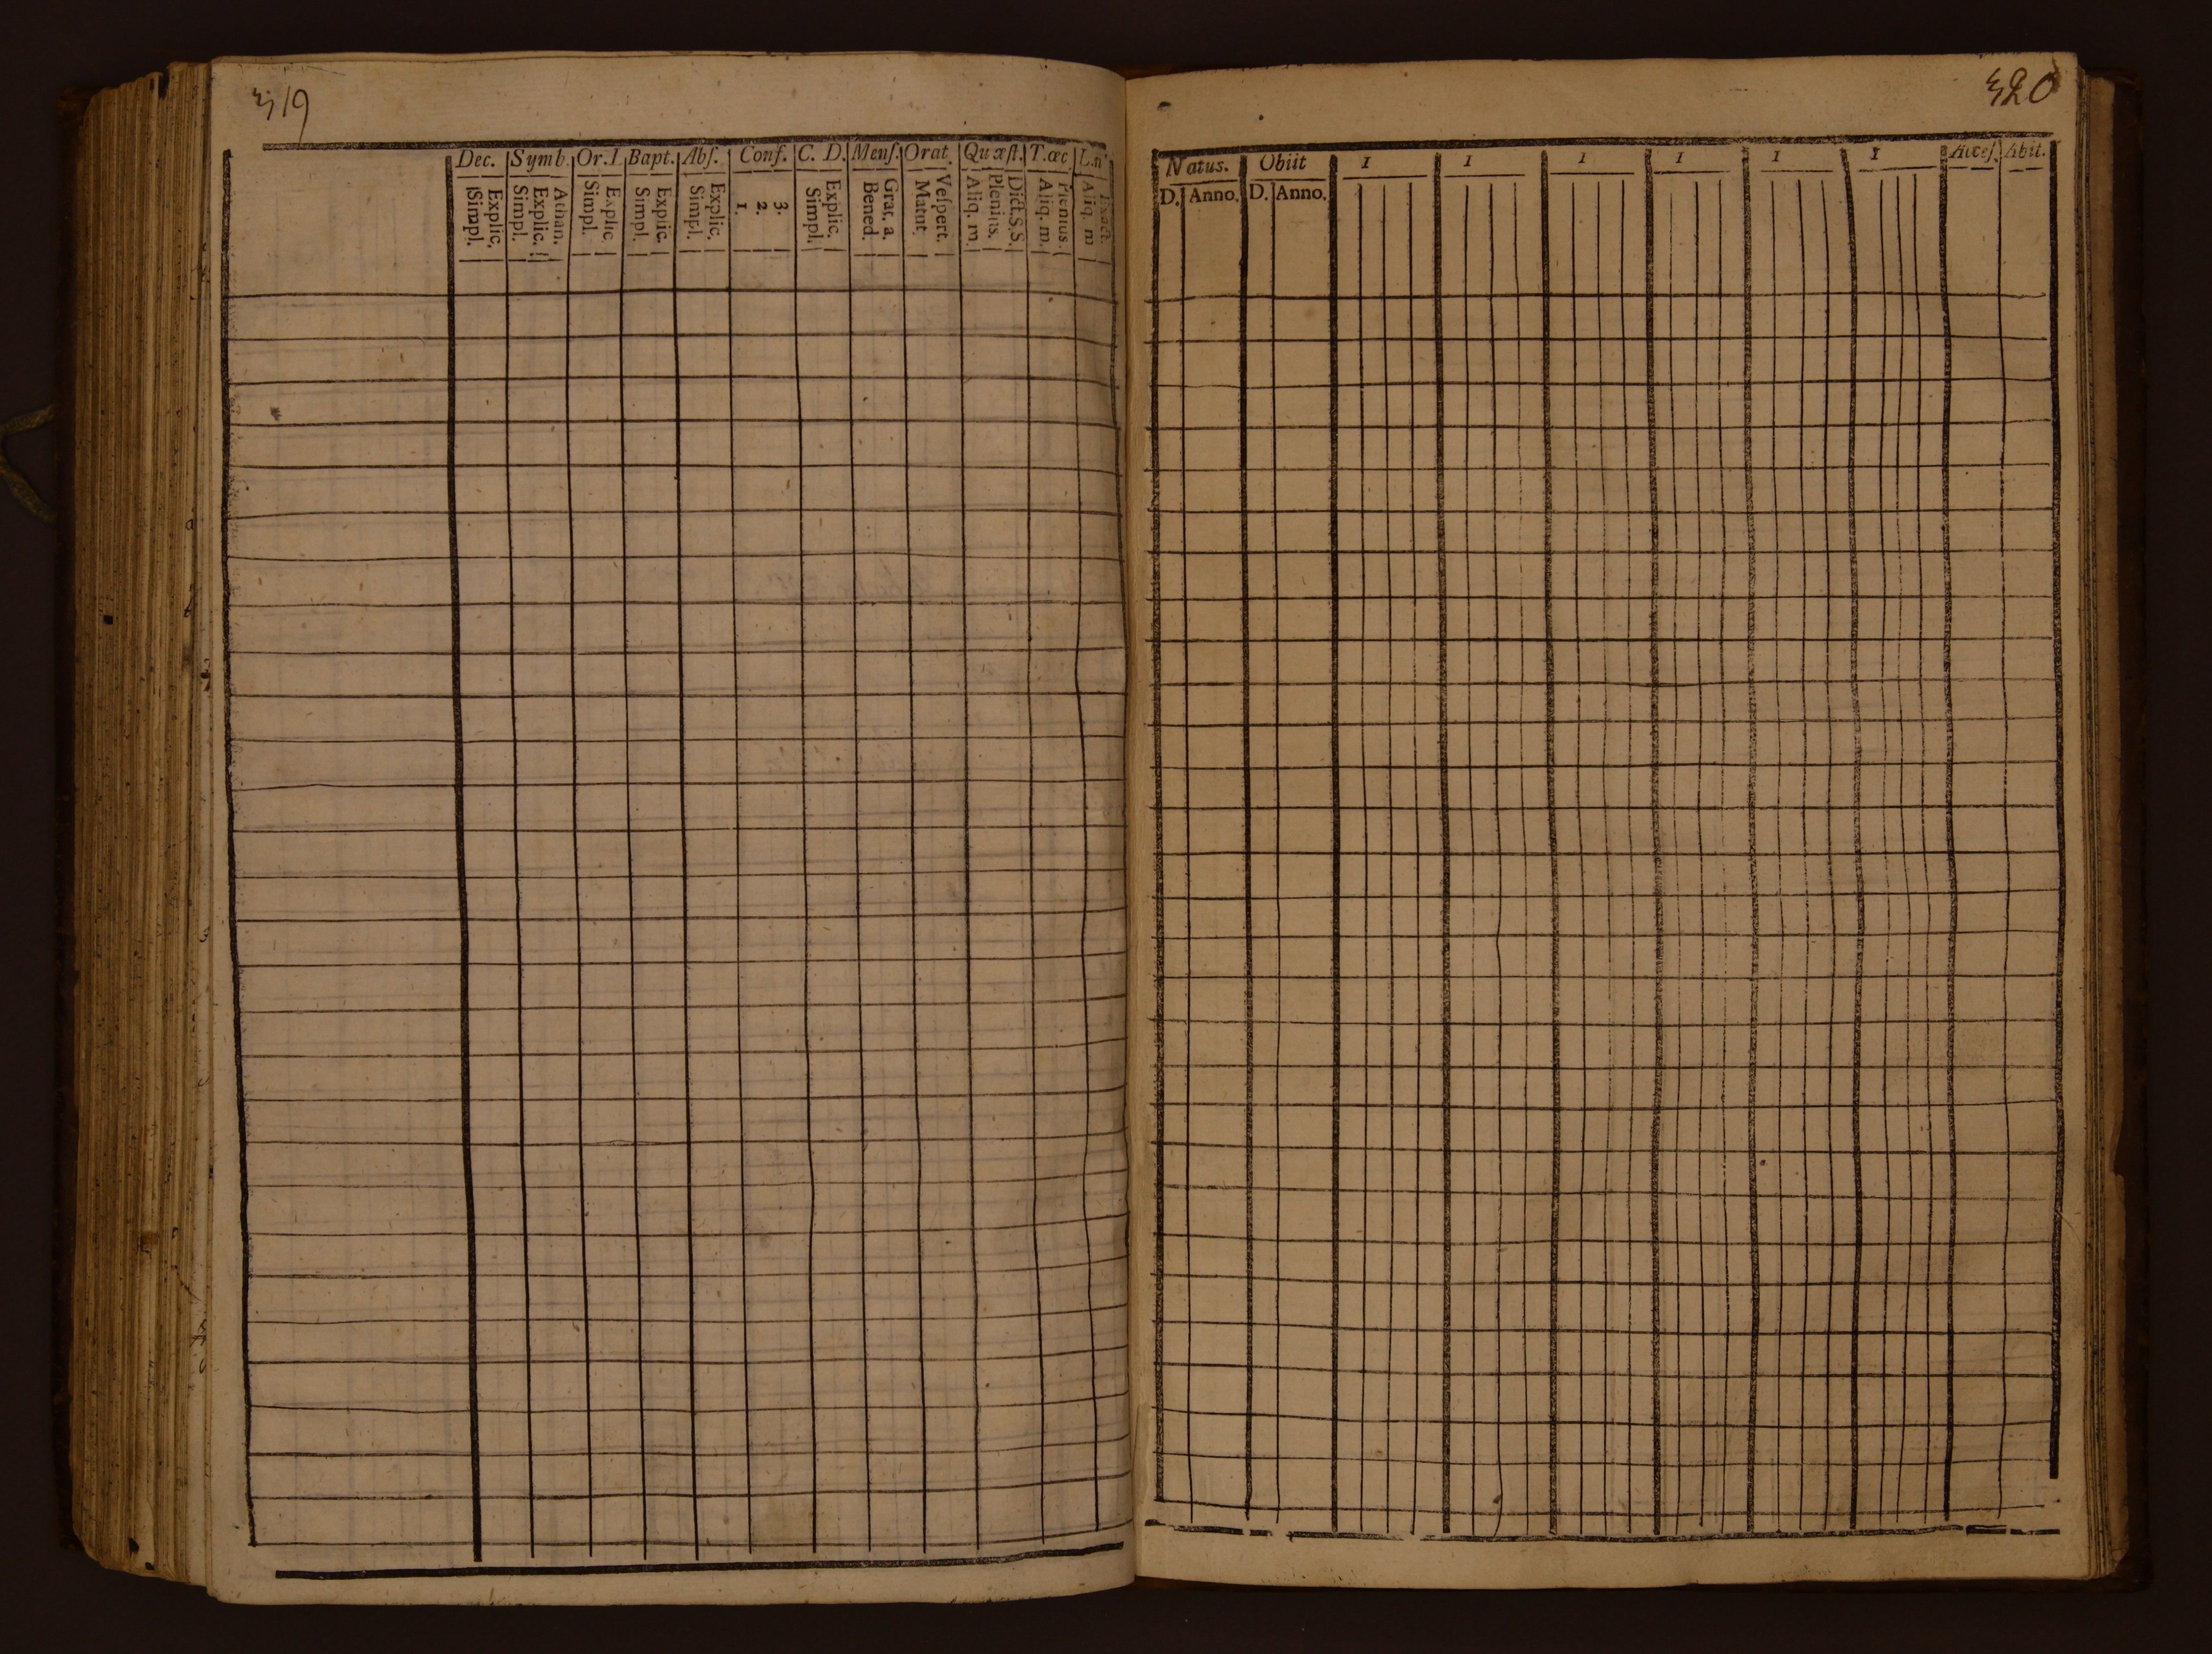 319
Dec. Symb. Or. I. Bapt. Abſ. Conf. C. D. Menſ. Orat. Quæſt. T. œc L. n
Explic. Simpl.
Athan. Explic. Simpl.
Explic Simpl.
Explic. Simpl.
Explic. Simpl.
3. 2. 1.
Explic. Simpl.
Grat. a. Bened.
Veſpert. Matut.
Dict. S.S. Plenius. Aliq. m.
Plenius. Aliq. m.
Exact. Aliq. m
320
Natus. Obiit I I I I I I Acceſ. Abit.
D. Anno. D. Anno.